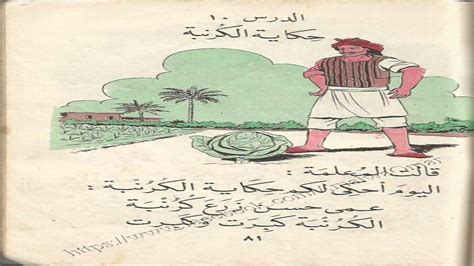 الدرس ١٠
حكاية الكرنبة
قالت المعلمة :
اليوم أحكى لكم حكاية الكرنبة :
عمى حسن زرع كرنبة
الكرنبة كبرت وكبرت
٨١